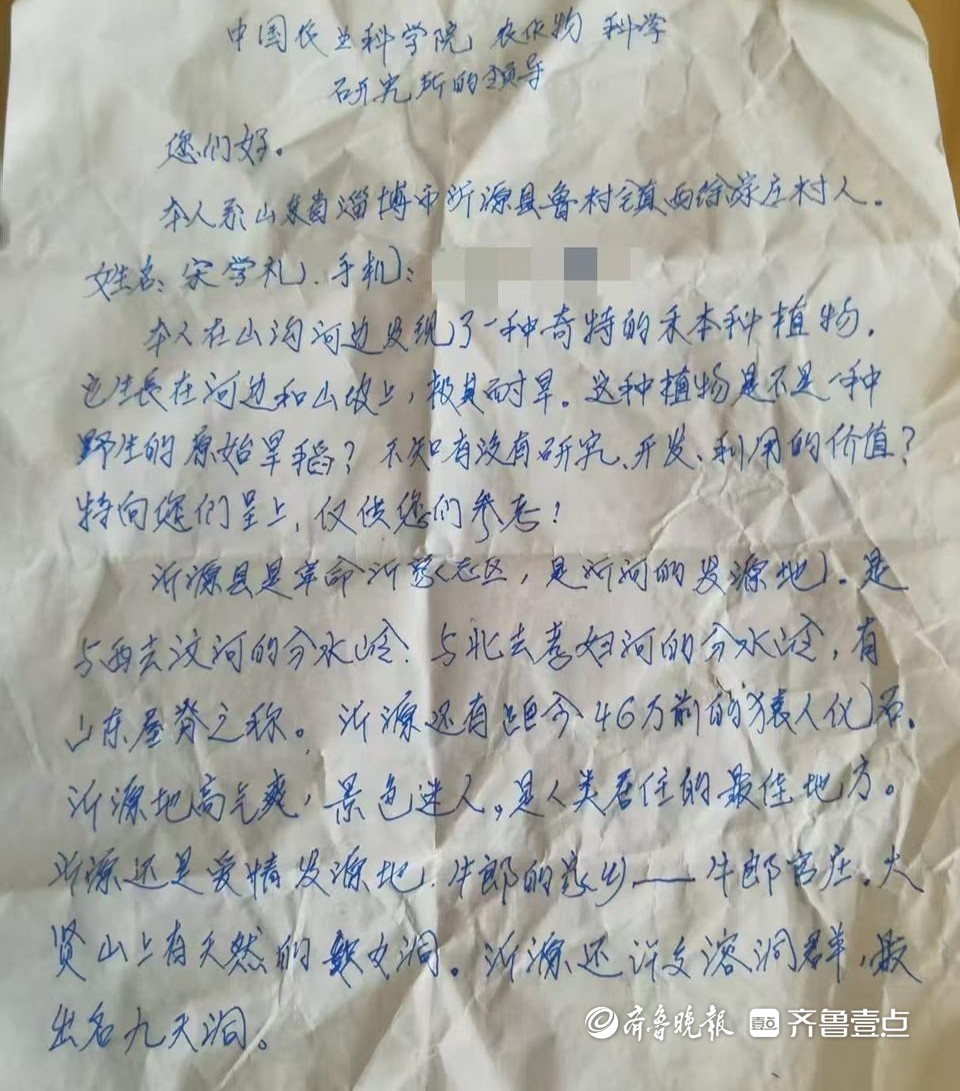 中国农业科学院 农作物 科学
研究所的领导
您们好。
本人系山东省淄博市沂源县鲁村镇西徐家庄村人。
姓名:宋学礼.手机:
本人在山沟河边发现了一种奇特的禾本科植物.
它生长在河边和山坡上,极其耐旱。这种植物是不是一种
野生的原始旱稻?不知有没有研究、开发、利用的价值?
特向您们呈上,仅供您们参考!
沂源县是革命沂蒙老区,是沂河的发源地.是
与西去汶河的分水岭.与北去孝妇河的分水岭,有
山东屋脊之称。沂源还有距今46万前的猿人化石.
沂源地高气爽,景色迷人,是人类居住的最佳地方。
沂源还是爱情发源地.牛郎的家乡——牛郎官庄.大
贤山上有天然的织女洞。沂源还许多溶洞群,最
出名九天洞。
齐鲁晚报 齐鲁壹点